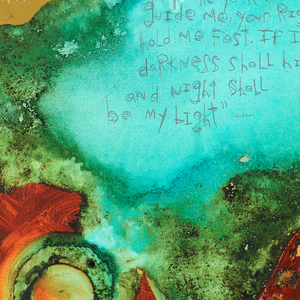 guide me, your Rig
hold me fast. If I
darkness shall hi
and night shall
be my Light"